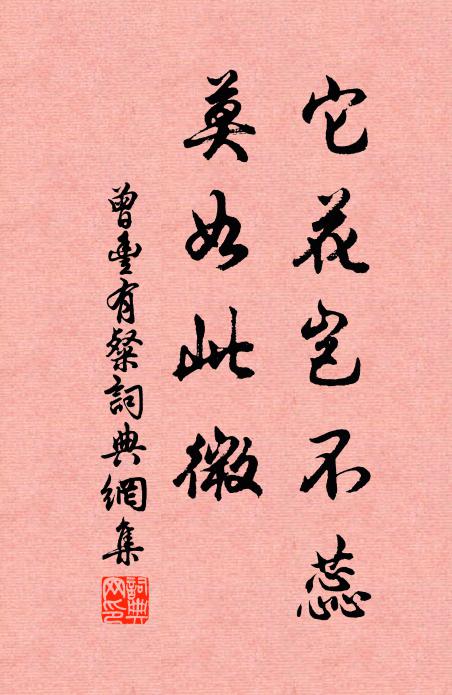 它花岂不蕊
莫如此微
曾丰有粲詞典網集
詞典网印